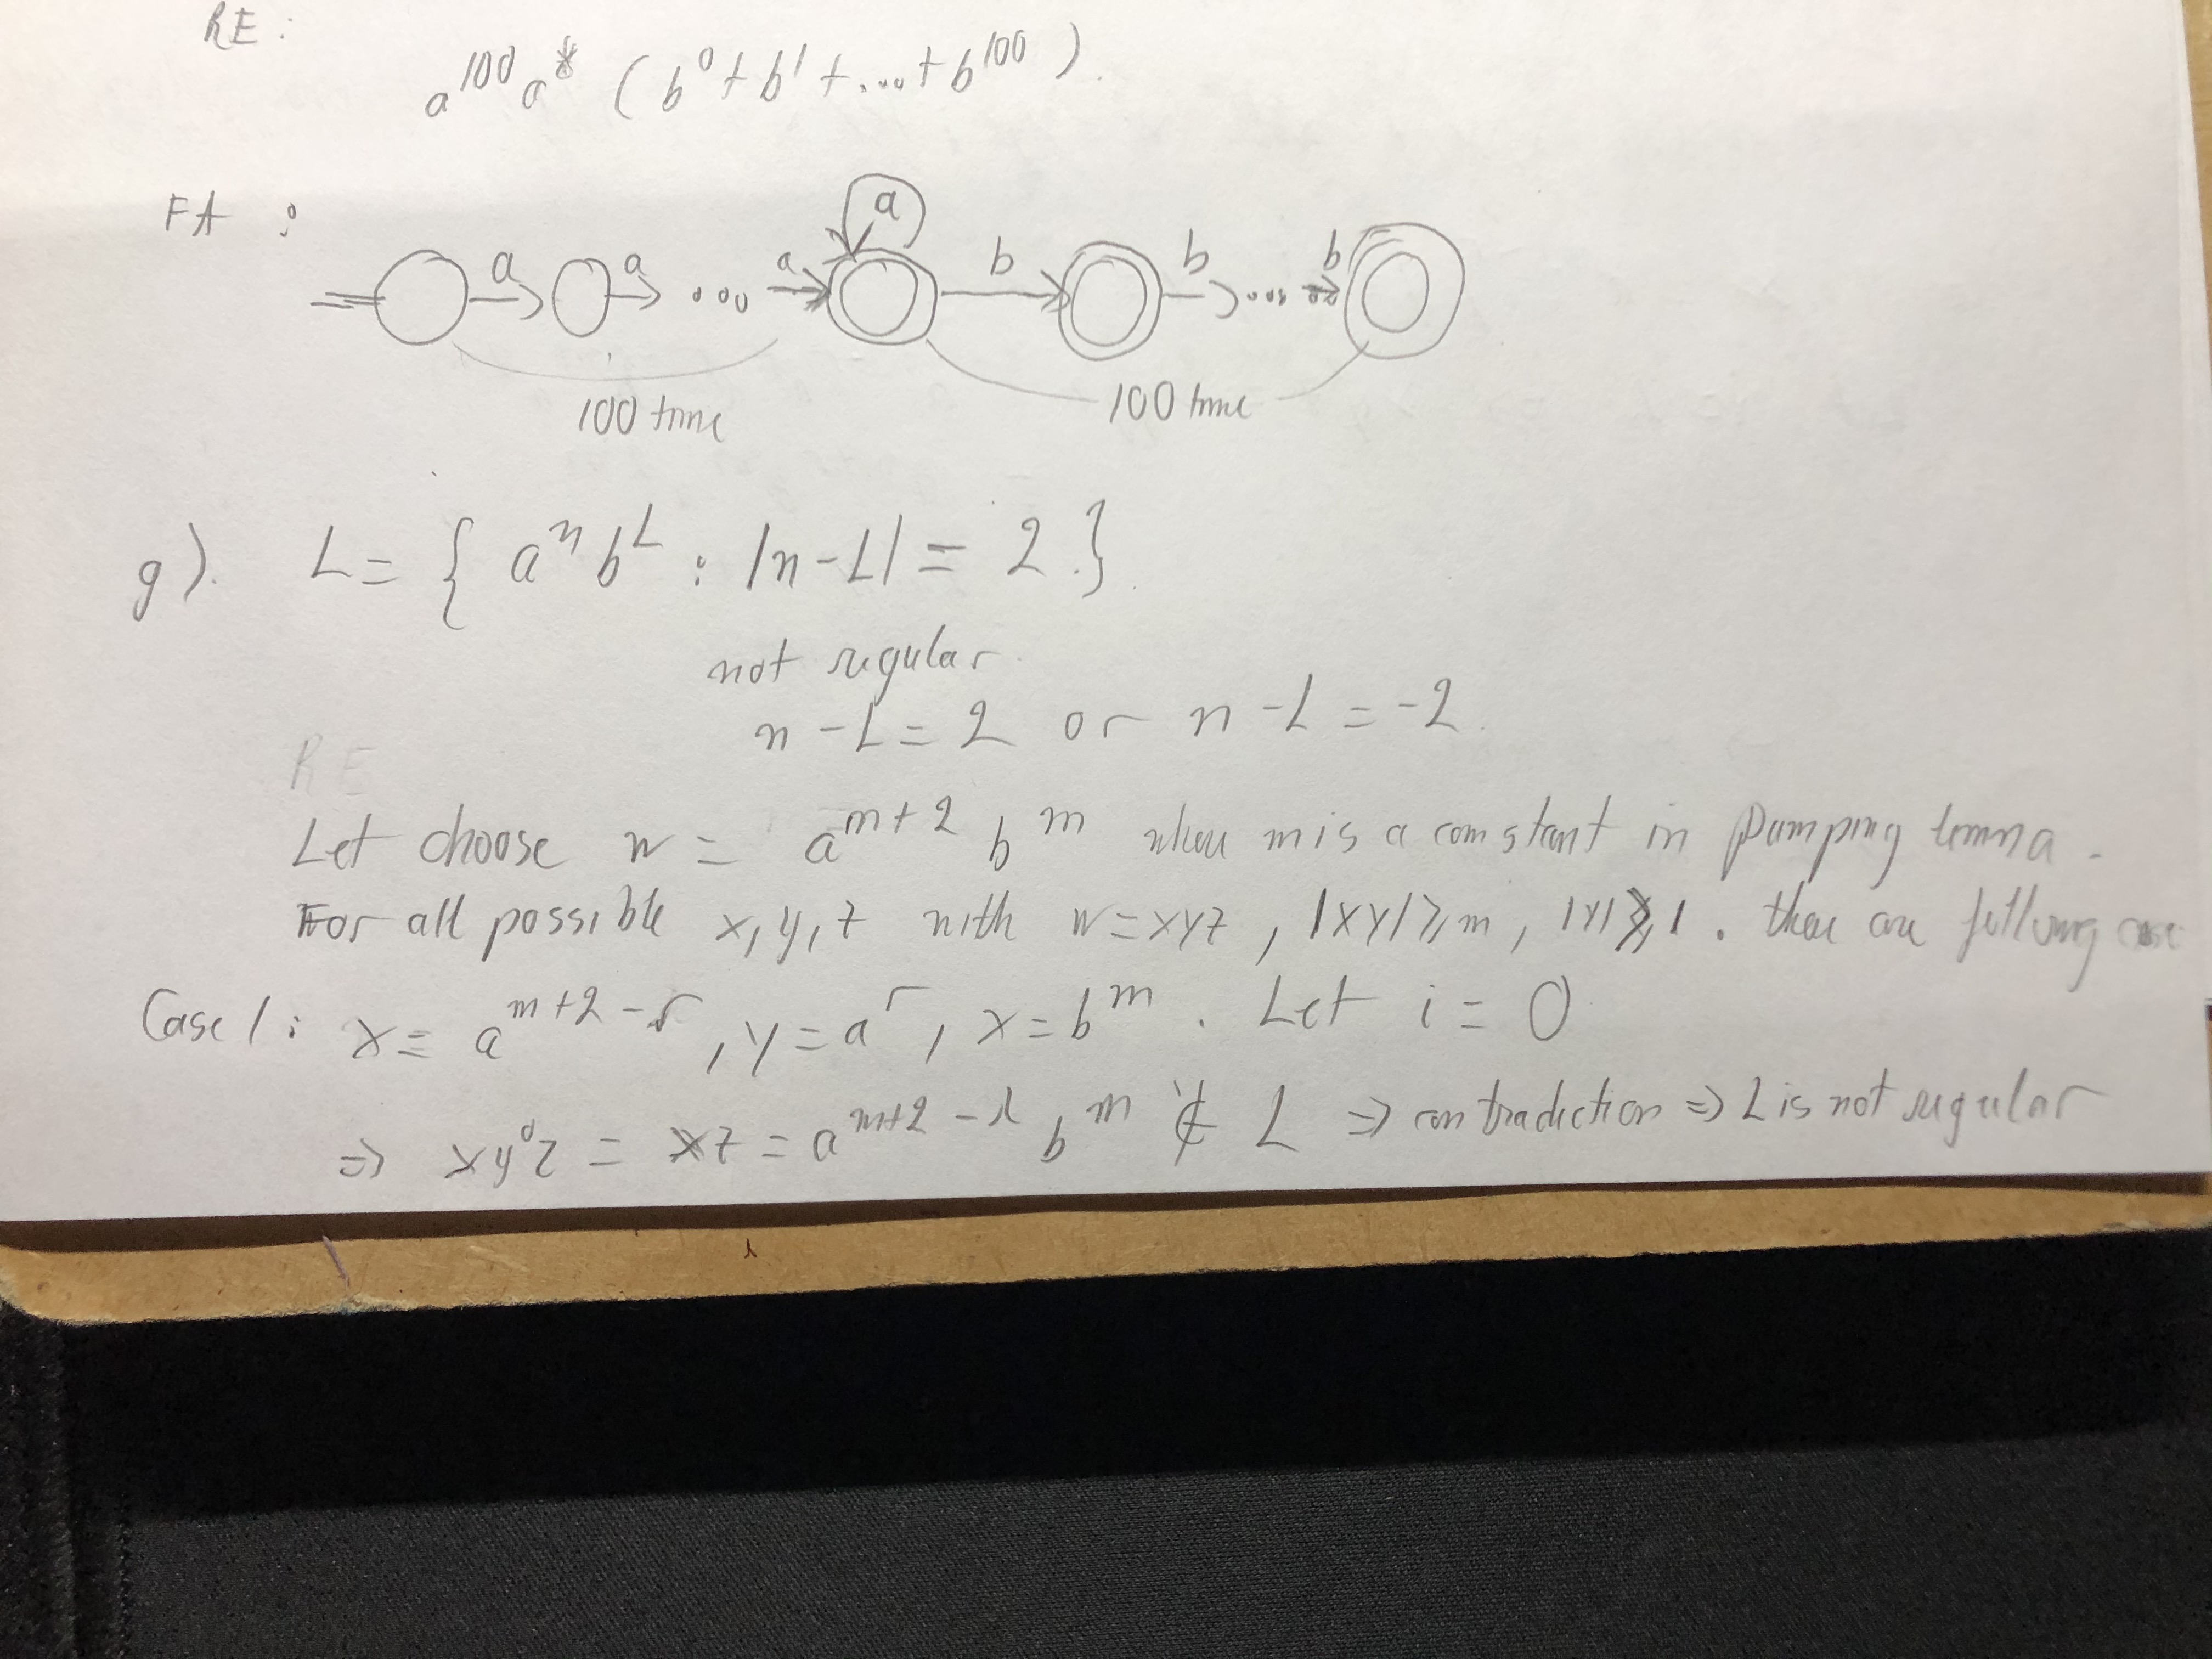 RE:
a^100 a* (b^0 + b^1 + ... + b^100).
FA :
a a ... a a b b ... b
100 time 100 time
g). L = { a^n b^L : |n - L| = 2 .}
not regular
n - L = 2 or n - L = -2.
RE
Let choose w = a^{m+2} b^m where m is a constant in Pumping lemma.
For all possible x, y, z with w = xyz, |xy| ≥ m, |y| ≥ 1. there are following case
Case 1: x = a^{m+2-r}, y = a^r, x = b^m. Let i = 0
⇒ xy^0z = xz = a^{m+2-r} b^m ∉ L ⇒ contradiction ⇒ L is not regular